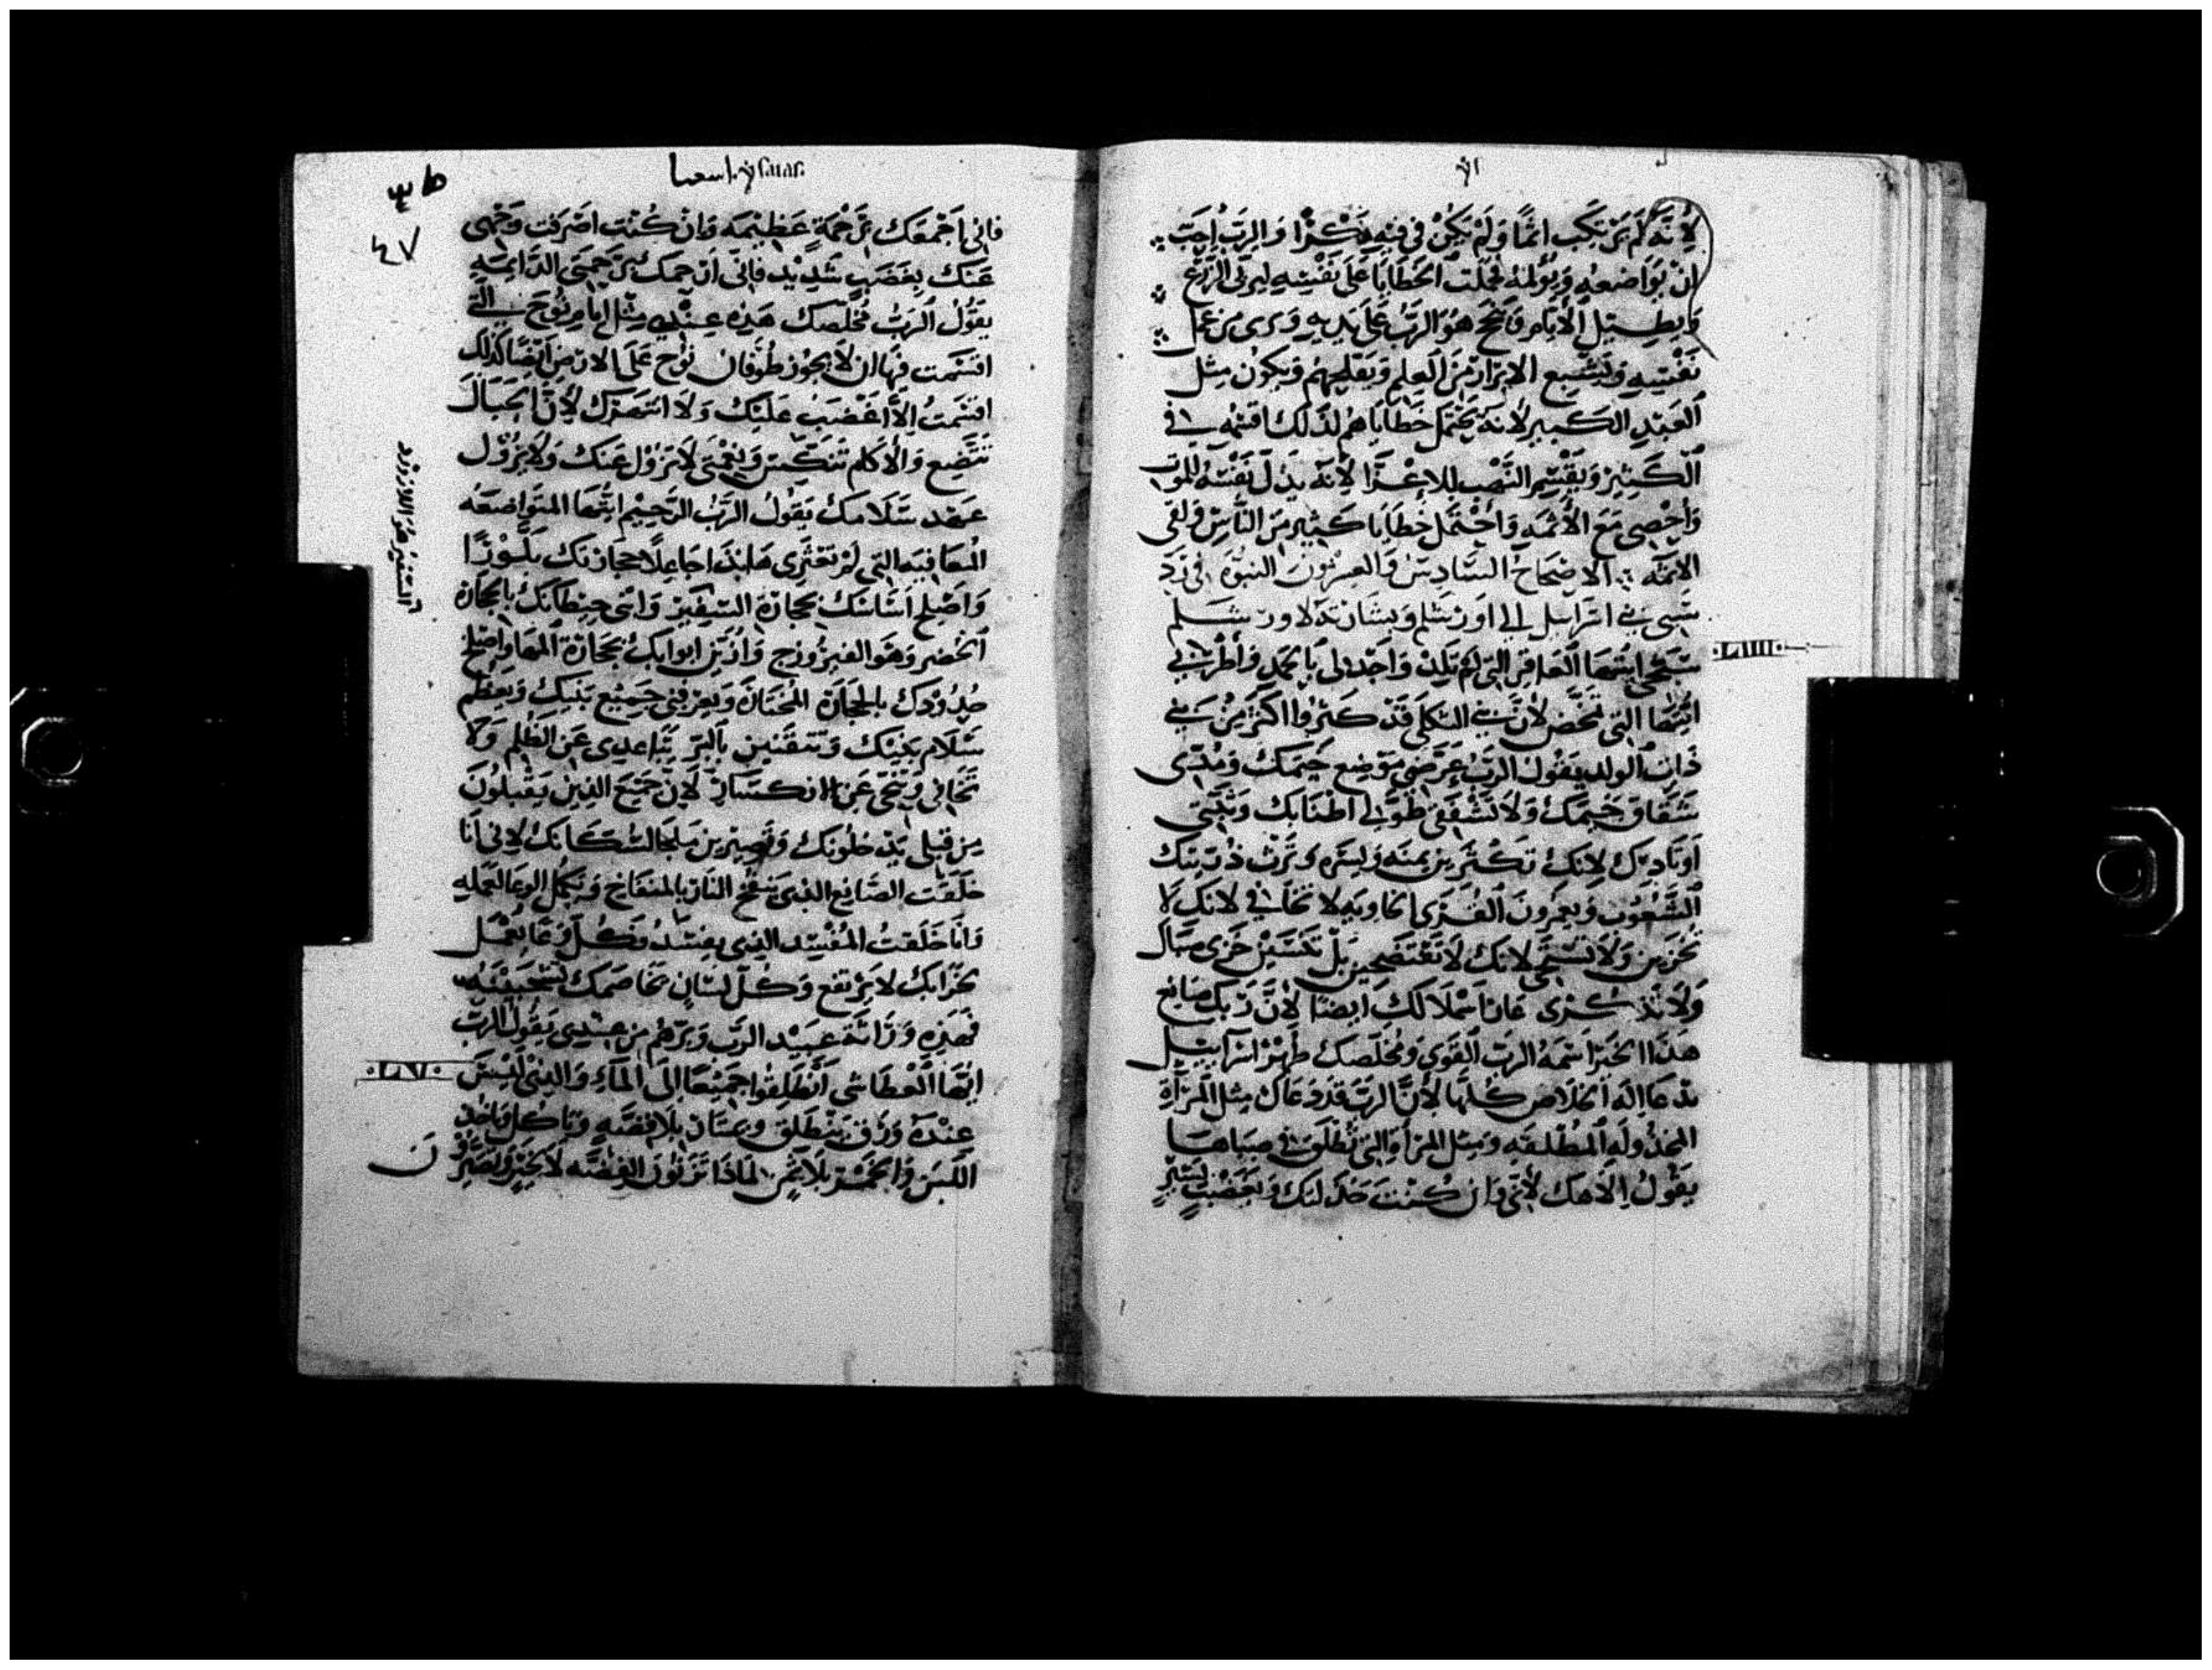 لأنّه لم يَرتكب اثمًا وَلَمْ يَكُنْ في فيه مَكْرًا وَالربّ احبّ
انْ يواضعه وَيؤلمه فجُعلت الخطايا علَى نَفْسِهِ ليرى الزَرع
وَيطيل الأيّام وَينجح هوَ الربّ عَلَى يديه وَيرى من عمل
نَفْسِهِ وَيَشبع الابرار مِنَ العلم وَيفلحهم وَيكون مثل
العَبْد الكبير لانه يَحْتَمل خَطاياهم لذلك اقسمه في
الكَثِيْر وَيقسم النَهْب للاعزا لأنّه بذل نَفْسَهُ للموت
وَأُحْصِى مَعَ الأثمه وَاحْتَمل خَطايا كَثير مِن النَاسِ وَلقى
الاثمّه الاصحَاحُ السَّادِسْ وَالعِشْرُون النبوّة في رَدّ
سَبي بَني اسرَايل الي اورشلم وبشارته لاورشلم
سَبّحى ايتها العَاقِر التي لم تلد وَاحدلى بالحمد وَاطرَبي
ايتها التى تمخض لأنّ بني الثكلى قد كثروا اكثر من بَني
ذَات الولد يقول الربّ عرّضى مَوضِع خيمك وَمُدّى
شقاق خيمك وَلَا تشفقي طوّلي اطنابك وَثبّتى
اوتادك لانك تكثرين يمنه وَيسره وَيرث ذرّيتك
الشُعُوب وَيعمرون القُرَى الخاويه لا تخافي لانك لا
تخزين وَلَا تستحى لانك لا تفتضحين بَلْ تنسَيْن خزى صباك
وَلا تذكرى عار ارملالك ايضًا لأنَّ رَبّك صَانع
هذا الخبر اسمه الربّ القوى وَمُخلّصك طُهْرُ اسرآييل
يدعا اله الخَلاص كُلّها لأنَّ الربّ قد دعَاك مِثل المَرأة
المخذوله المُطلّقه وَمثل المَرأة التي تُطلّق في صبَاها
يقول الَاهك لأنّي وَان كُنْتَ خذلتك وَبغضب يسير
اشعيا Esaias.
٤٧
فاني اَجْمعك برَحْمَةٍ عَظِيْمَه وَان كُنت اصرَفت وَجهى
عَنك بِغَضَب شَدِيْد فانّي اَرْحمك برَحمتى الدَّايمه
يقُول الربّ مُخلّصك هَذِه عِنْدي مِثْل ايَّام نُوح التي
اقسَمت فيها ان لا يجوز طُوفان نُوح عَلَى الارض ايضًا كَذلك
اقسَمتُ الَّا اغْضَبُ عَليْك وَلَا انتهرك لأنَّ الجبَال
تتّضع وَالأكام تنكسر وَنعمتي لا تزول عَنك وَلَا يزُول
عَهد سَلَامك يَقُول الربّ الرحيم ايتها المتواضعه
المعافيه التي لم تعزّى هانذا جَاعلًا حجارتك بَلّورًا
وَاصلح اسَاسك بحجارة السفير وَابني حيطانك بالحجارة
الخضر وَهو الفيروزج وَازيّن ابوابك بحجارة المها وَاصلح
حُدودك بالحجارة المختارة وَيعرفني جَميع بَنيك وَيعظم
سَلَام بَنيك وَتتقنين بالبرّ تباعدى عَن الظلم وَلا
تخافي وَتنحى عَن الانكسار لأن جَميع الذين يَقبلون
مِن قبلى يدخلونك وَتصيرين ملجا لسُكّانك لانى انا
خلقت الصَانع الذي يَنفخ النار بالمنفاخ وَيكمّل الوعا لعمله
وَانا خَلَقتُ المُفسد الذي يفسدُ وَكُلّ وعَا يعمل
بخرابك لا يرتفع وَكُلّ لسَان يخاصمك
فهذه ورَاثة عبيد الربّ وَبرّهم من عندي يَقُول الربّ
ايّها العطاش انطلقوا جميعًا الى الماء وَالذي ليس
عنده ورق ينطلق ويمتار بلا فضّه وَياكل وَياخذ
اللبن وَالخمر بلا ثمن لماذا تزنون الفضّه لا